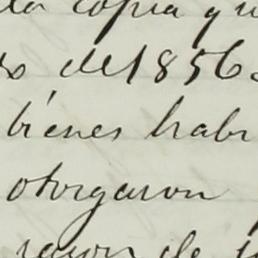 la copia qu
de 1856.
bienes habi
otorgaron
razon de